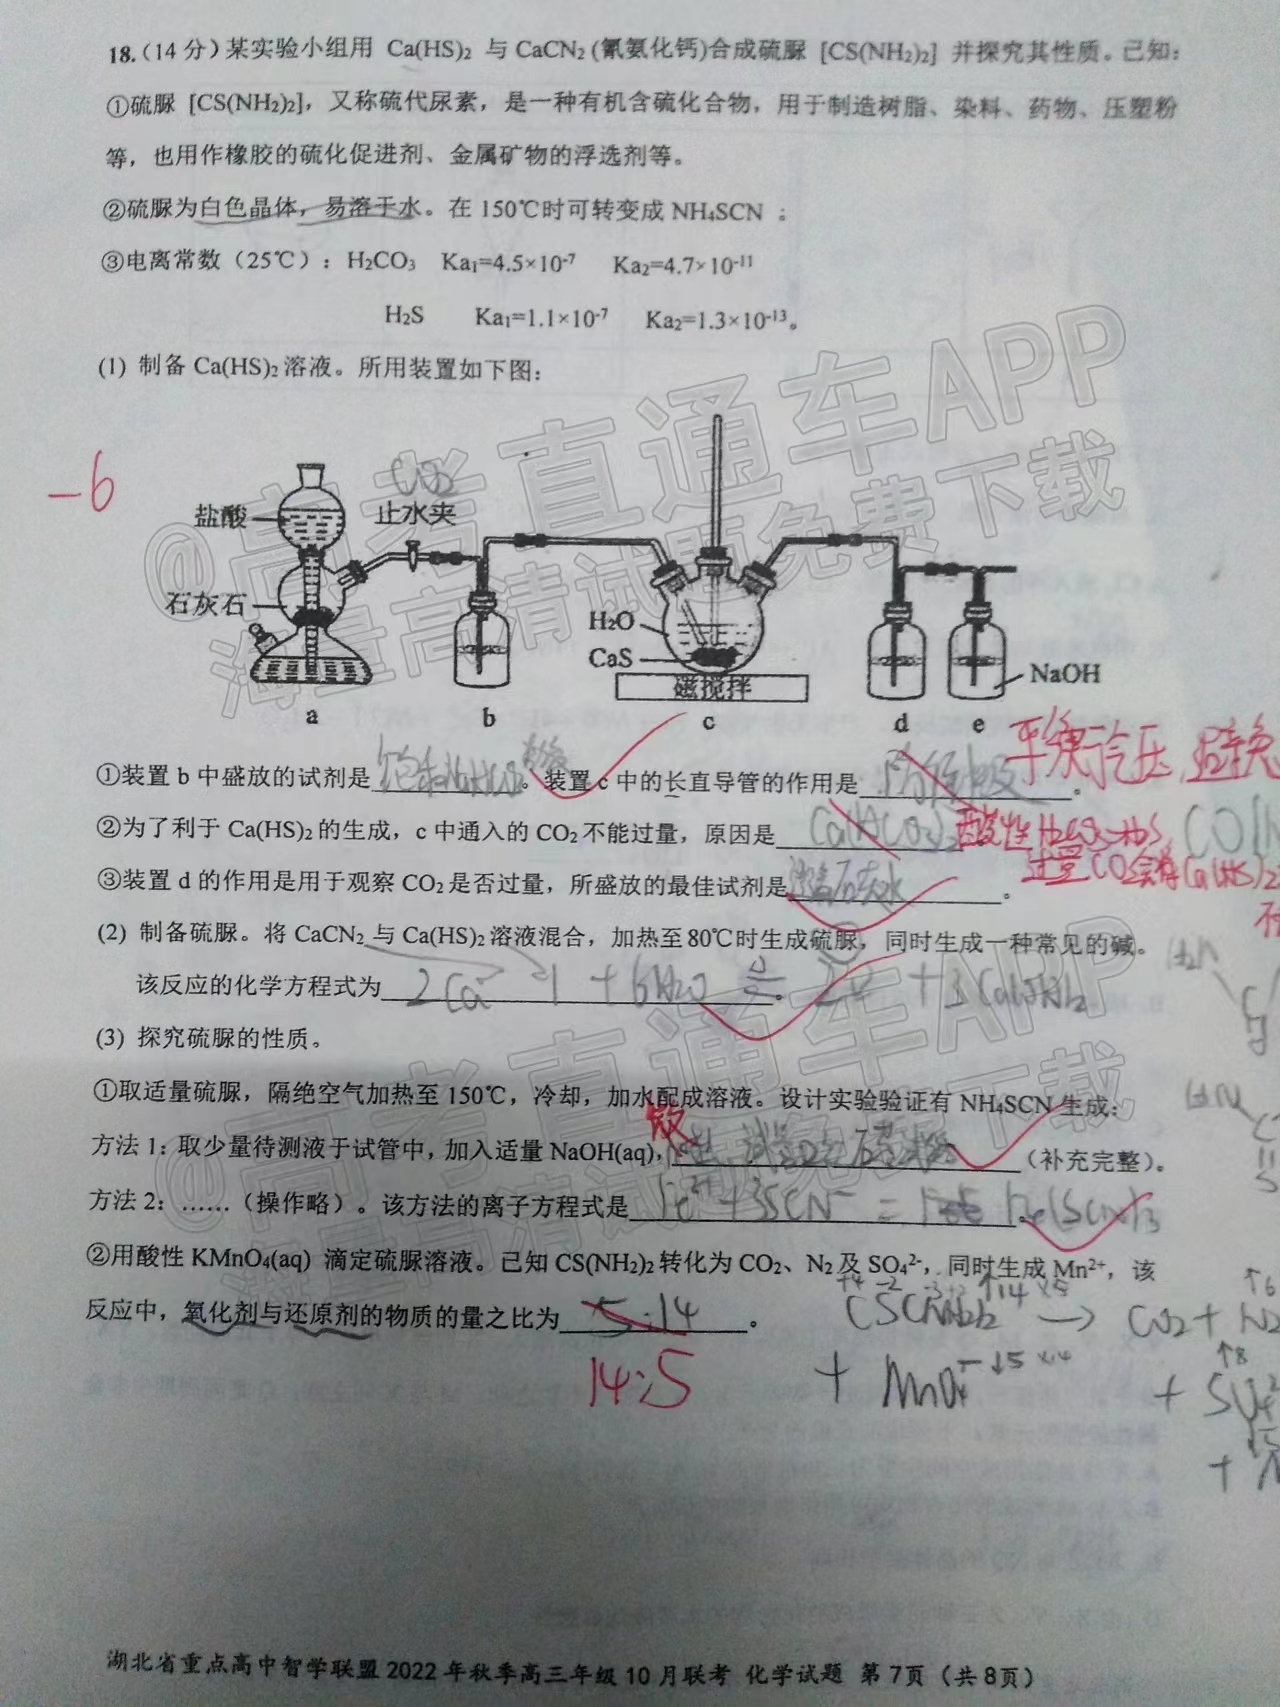 18.(14分)某实验小组用 Ca(HS)₂ 与 CaCN₂(氰氨化钙)合成硫脲 [CS(NH₂)₂] 并探究其性质。已知:
①硫脲 [CS(NH₂)₂],又称硫代尿素,是一种有机含硫化合物,用于制造树脂、染料、药物、压塑粉
等,也用作橡胶的硫化促进剂、金属矿物的浮选剂等。
②硫脲为白色晶体,易溶于水。在150℃时可转变成NH₄SCN ;
③电离常数(25℃):H₂CO₃ Ka₁=4.5×10⁻⁷ Ka₂=4.7×10⁻¹¹
H₂S Ka₁=1.1×10⁻⁷ Ka₂=1.3×10⁻¹³。
(1) 制备Ca(HS)₂溶液。所用装置如下图:
@高考直通车APP
海量高清试题免费下载
-6
CO₂
盐酸
止水夹
石灰石
H₂O
CaS
磁搅拌
NaOH
a b c d e
①装置b中盛放的试剂是饱和NaHCO₃溶液。装置c中的长直导管的作用是防倒吸。
平衡气压,避免
②为了利于Ca(HS)₂的生成,c中通入的CO₂不能过量,原因是Ca(HCO₃)₂
酸性H₂CO₃>H₂S
过量CO₂会将Ca(HS)₂
③装置d的作用是用于观察CO₂是否过量,所盛放的最佳试剂是澄清石灰水。
(2) 制备硫脲。将CaCN₂与Ca(HS)₂溶液混合,加热至80℃时生成硫脲,同时生成一种常见的碱。
该反应的化学方程式为2 Ca + 1 + 6H₂O = 2 + 3Ca(OH)₂。
(3) 探究硫脲的性质。
①取适量硫脲,隔绝空气加热至150℃,冷却,加水配成溶液。设计实验验证有NH₄SCN生成:
方法1:取少量待测液于试管中,加入适量NaOH(aq), (补充完整)。
方法2:……(操作略)。该方法的离子方程式是Fe³⁺+3SCN⁻= Fe(SCN)₃。
②用酸性KMnO₄(aq) 滴定硫脲溶液。已知CS(NH₂)₂转化为CO₂、N₂及SO₄²⁻,同时生成Mn²⁺,该
反应中,氧化剂与还原剂的物质的量之比为5:14。
14:5
CS(NH₂)₂ → CO₂ + N₂
+ MnO₄⁻ + SO₄²
@高考直通车APP
海量高清试题免费下载
湖北省重点高中智学联盟2022年秋季高三年级10月联考 化学试题 第7页(共8页)